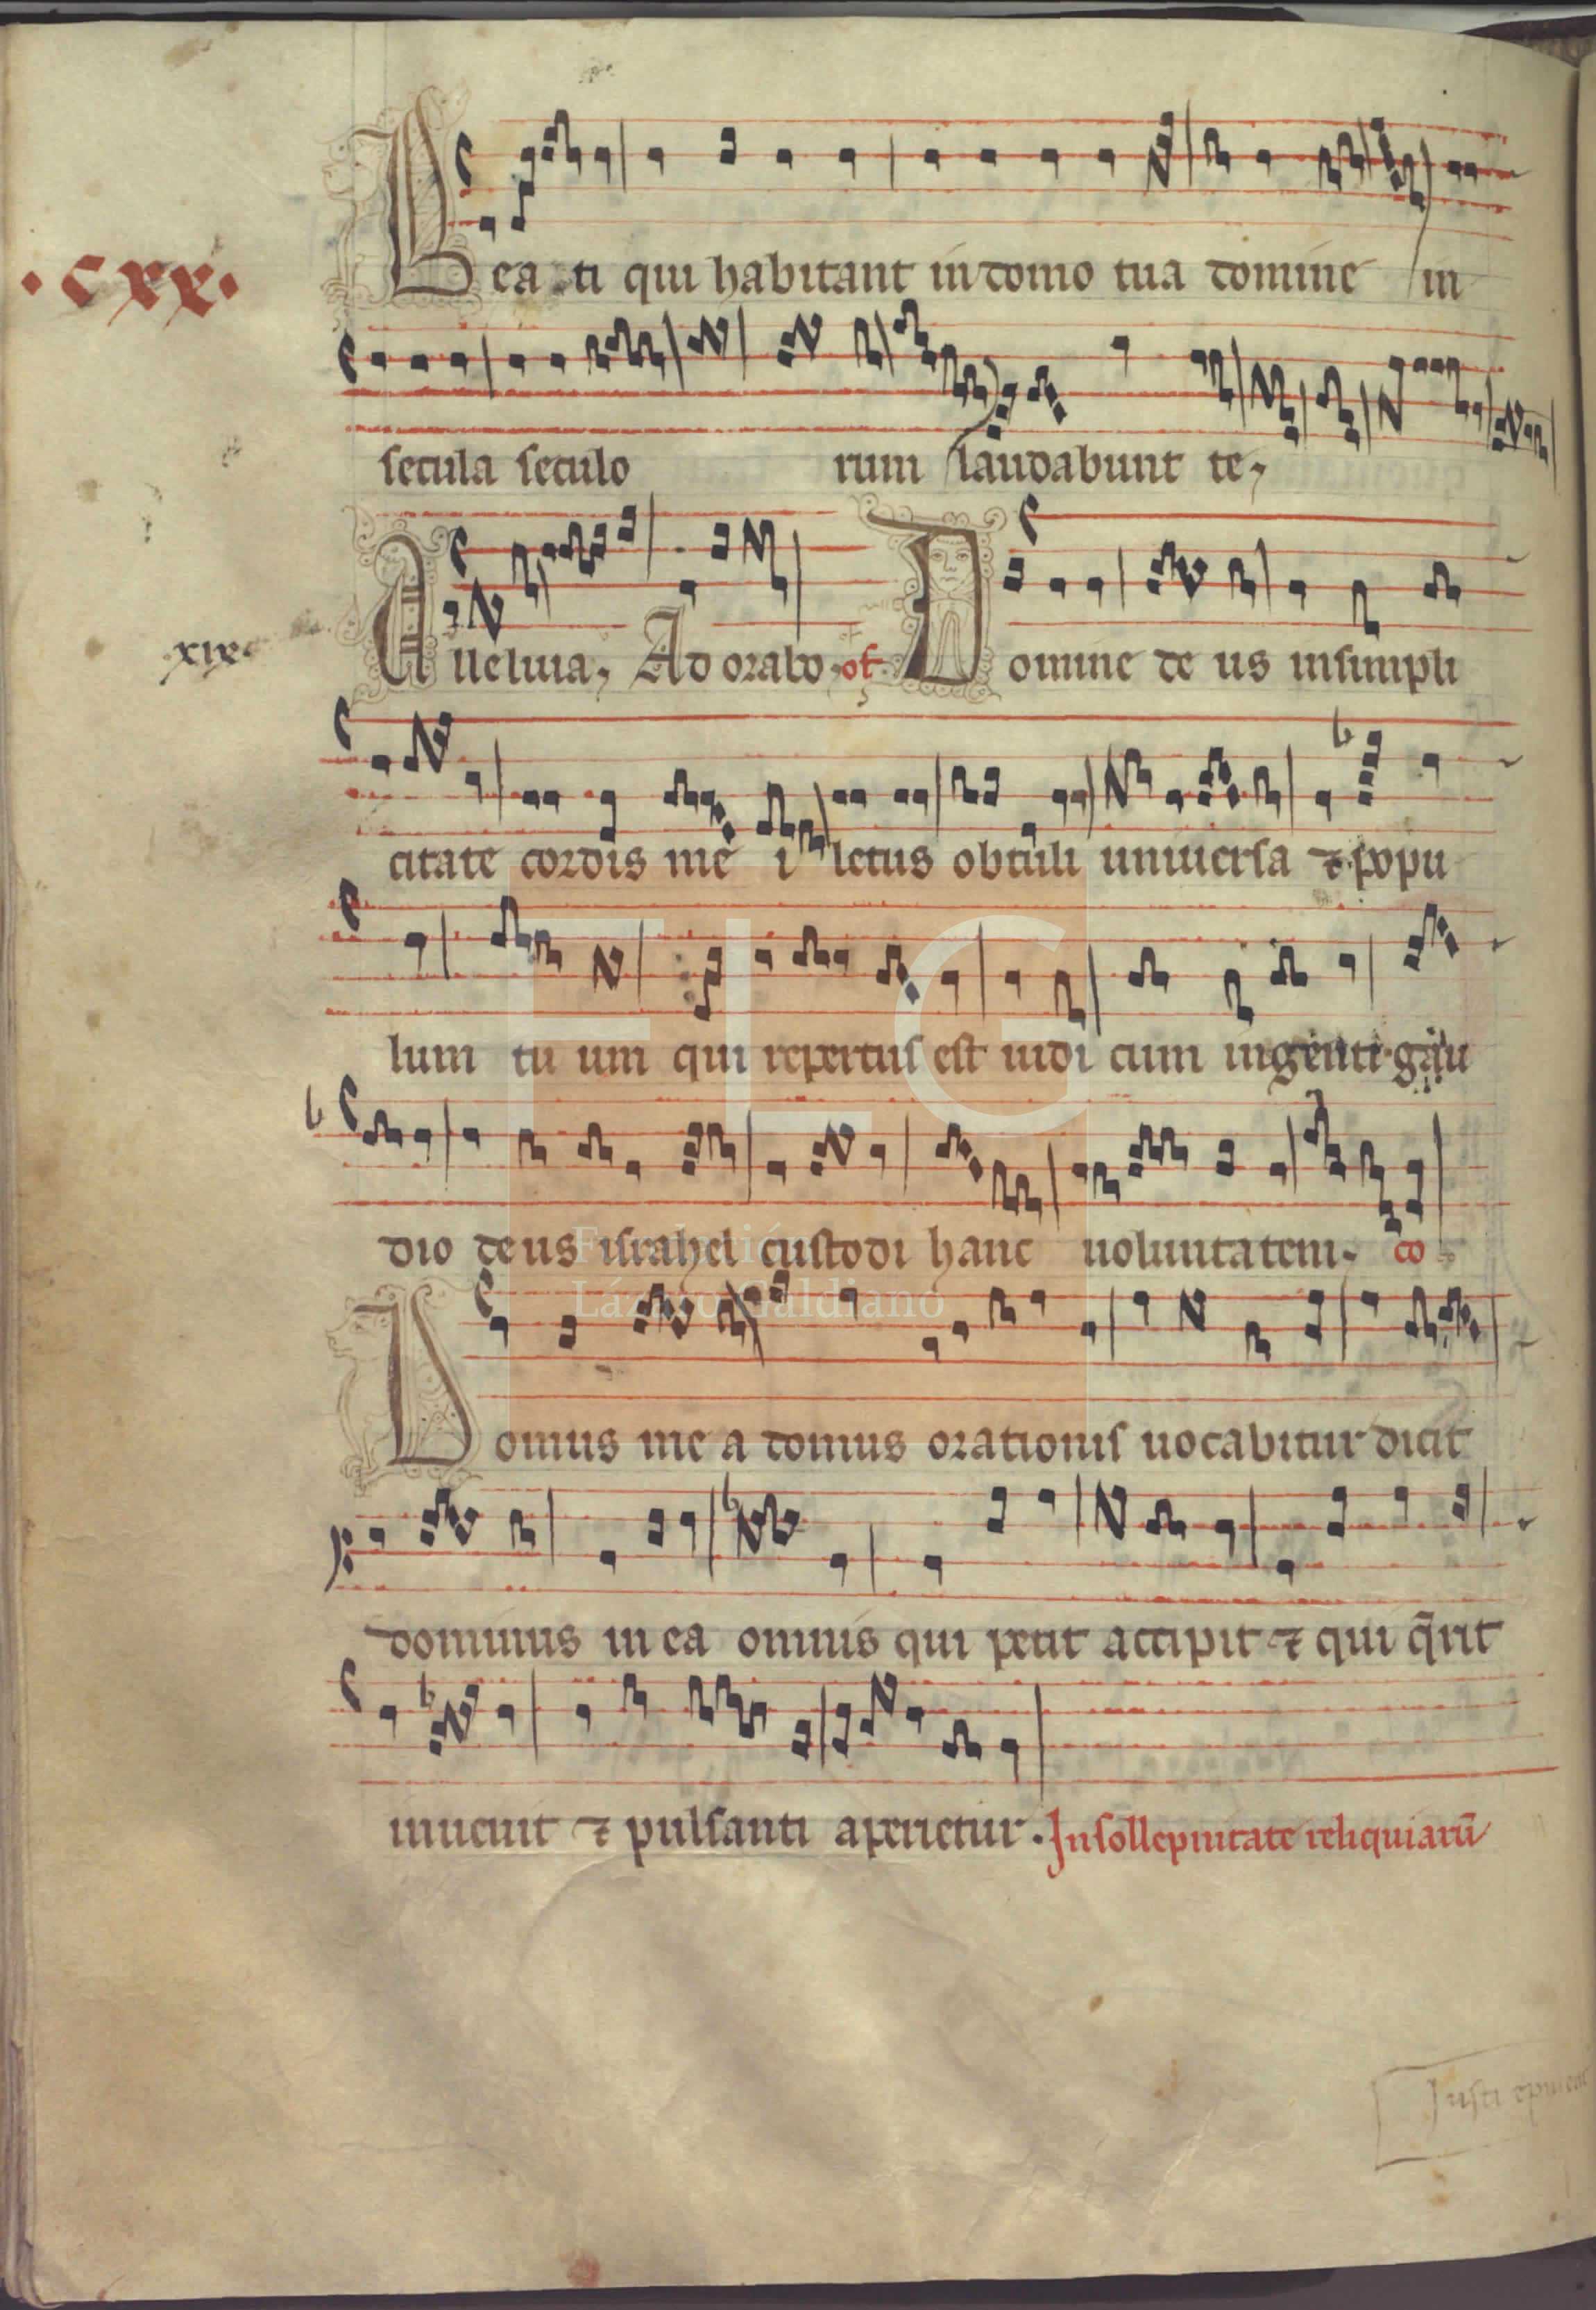 .cxx.
Beati qui habitant in domo tua domine in
secula seculo rum laudabunt te,
xix
Alleluia, Ad orabo. of. Domine de us in simpli
citate cordis me i letus obtuli uniuersa ⁊ popu
lum tu um qui repertus est uidi cum ingenti gau
dio deus israhel custodi hanc uoluntatem. co
Domus me a domus orationis uocabitur dicit
dominus in ea omnis qui petit accipit ⁊ qui q̄rit
inuenit ⁊ pulsanti aperietur. In sollepnitate reliquiarū
Iusti epulent
FLG
Fundación
Lázaro Galdiano